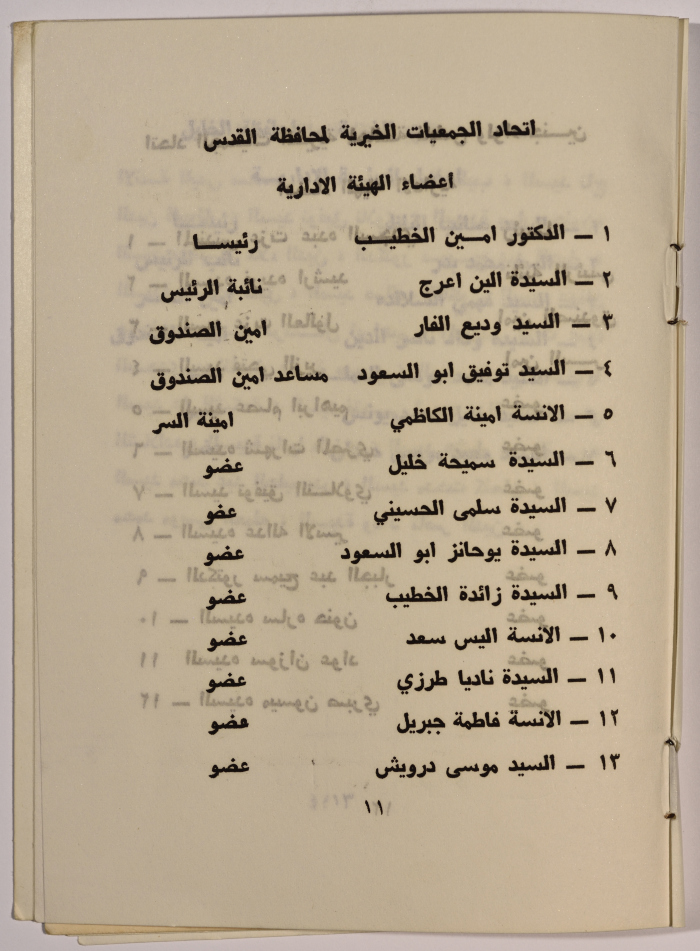 اتحاد الجمعيات الخيرية لمحافظة القدس
اعضاء الهيئة الادارية
١ ــ الدكتور امــين الخطيــب رئيســا
٢ ــ السيدة الين اعرج نائبة الرئيس
٣ ــ السيد وديع الفار امين الصندوق
٤ ــ السيد توفيق ابو السعود مساعد امين الصندوق
٥ ــ الانسة امينة الكاظمي امينة السر
٦ ــ السيدة سميحة خليل عضو
٧ ــ السيدة سلمى الحسيني عضو
٨ ــ السيدة يوحانز ابو السعود عضو
٩ ــ السيدة زائدة الخطيب عضو
١٠ ــ الآنسة اليس سعد عضو
١١ ــ السيدة ناديا طرزي عضو
١٢ ــ الآنسة فاطمة جبريل عضو
١٣ ــ السيد موسى درويش عضو
١١